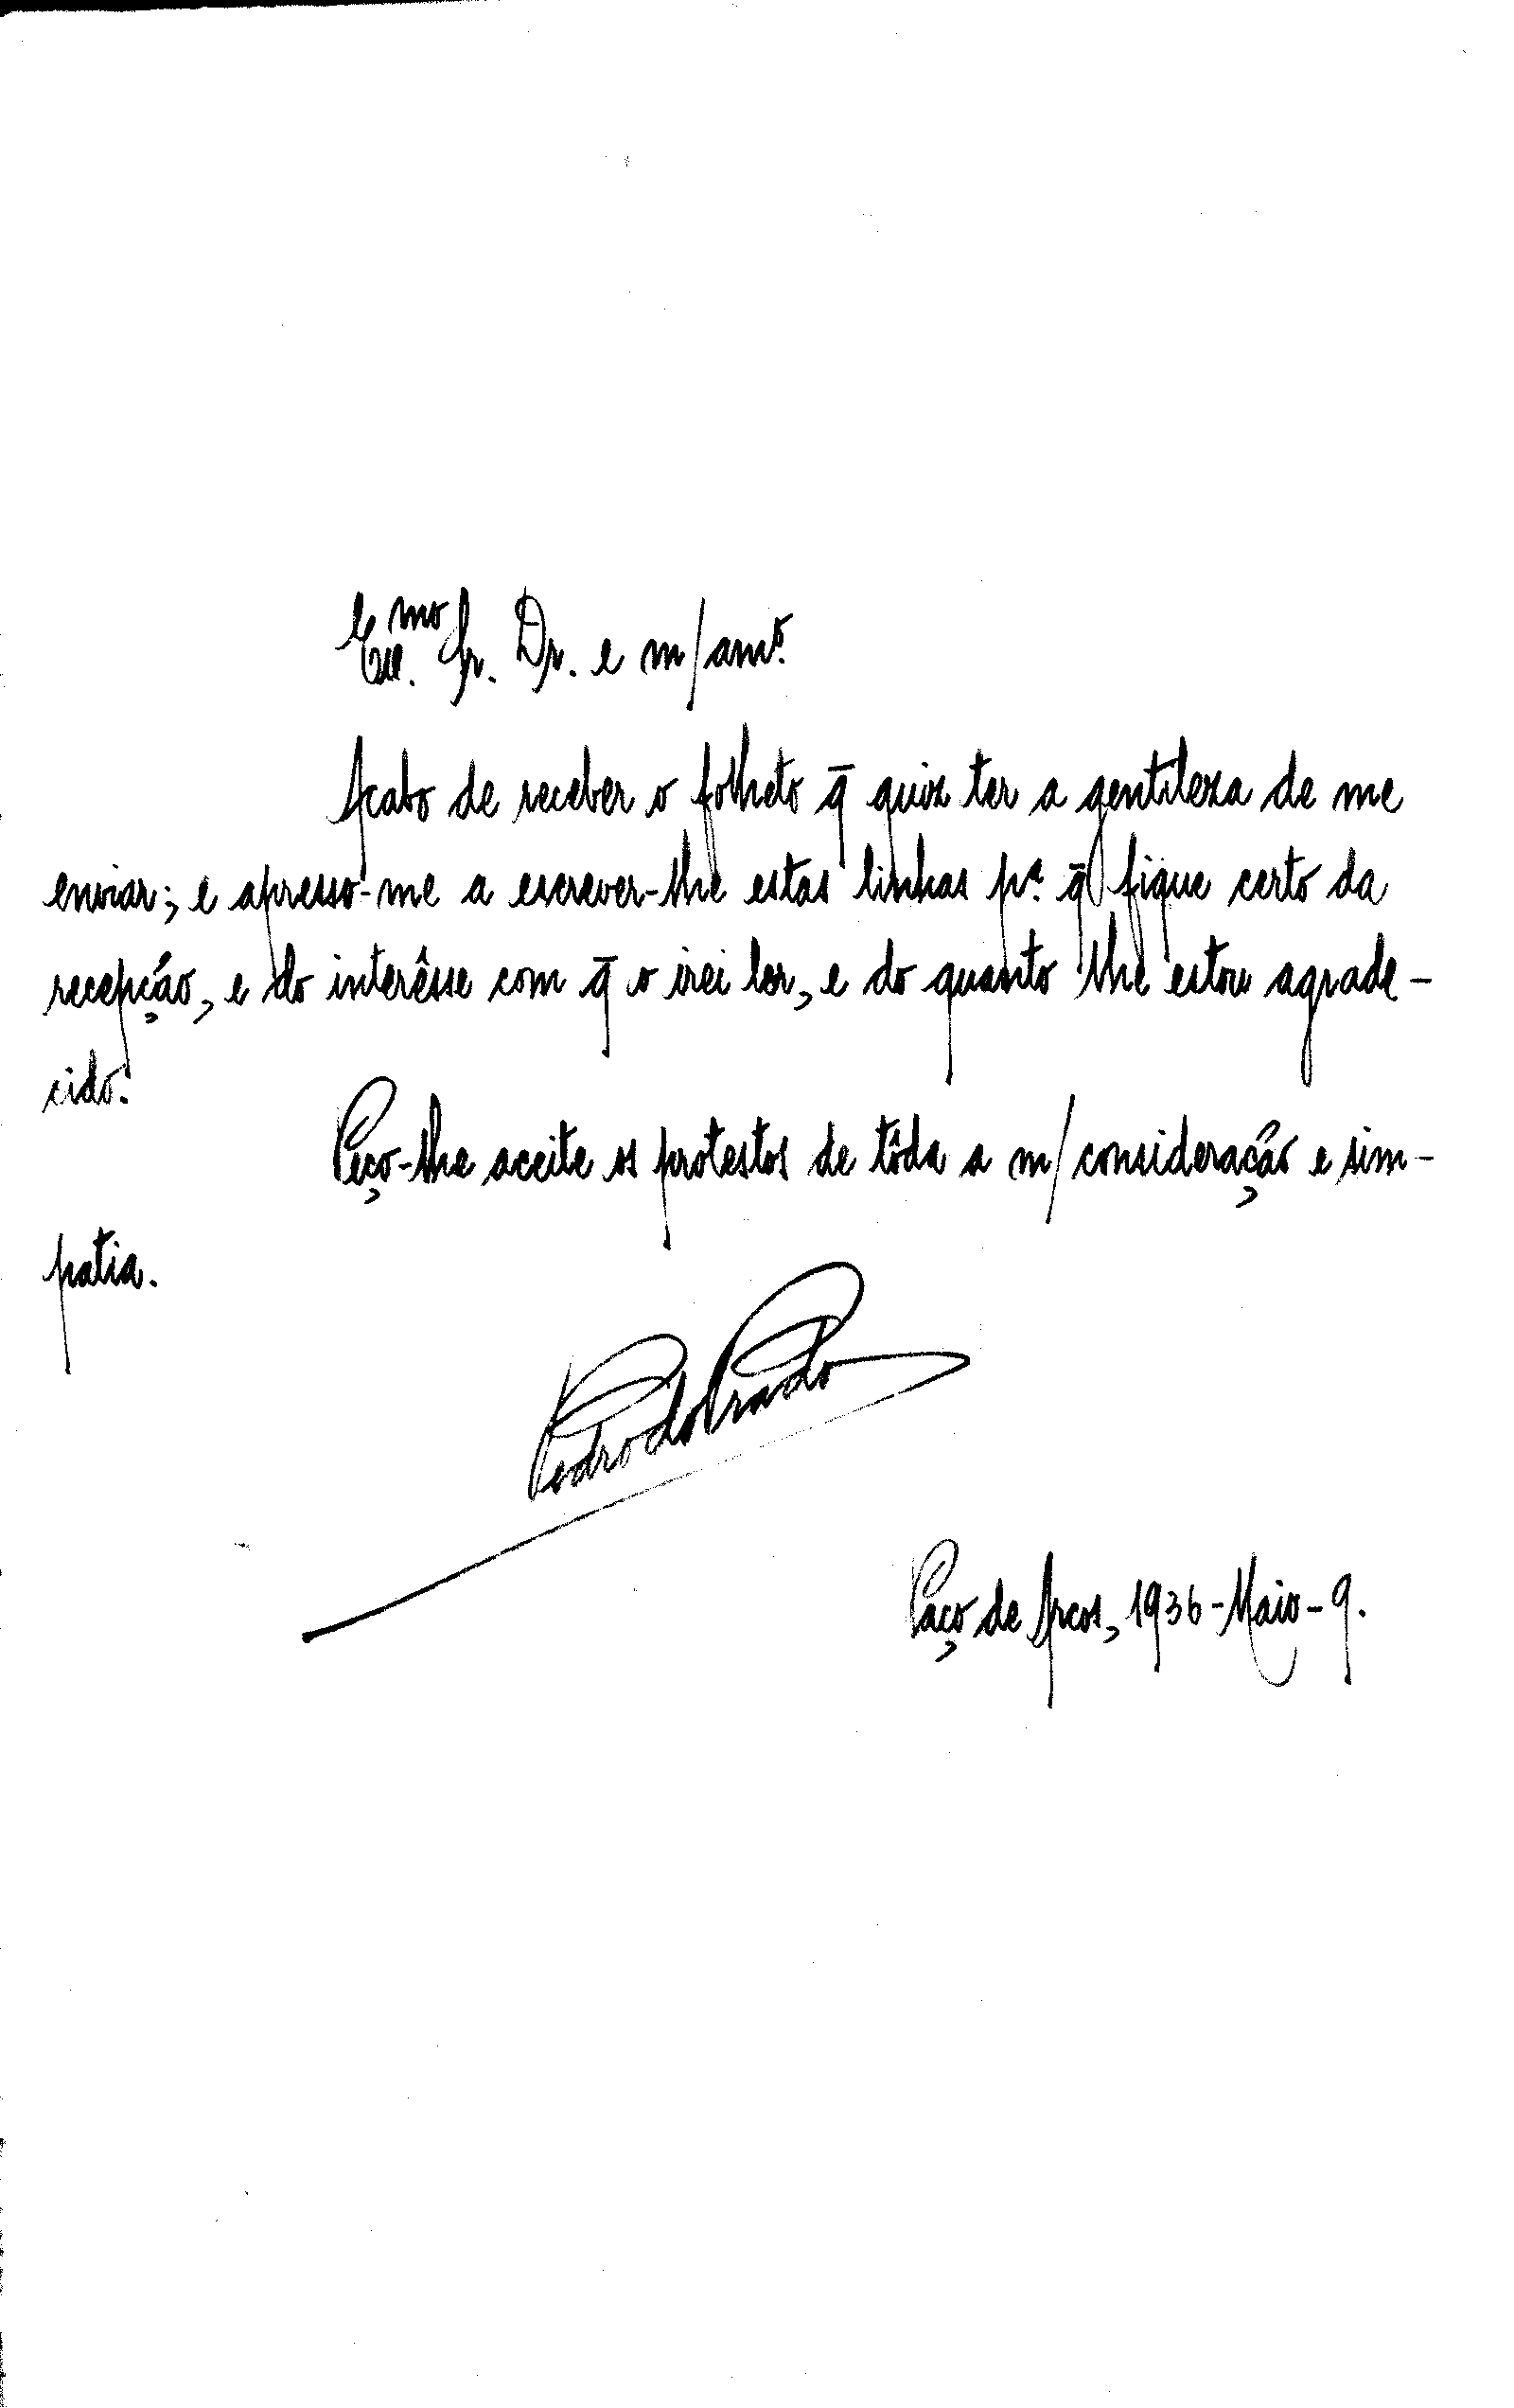 Exc.mo Sr. Dr. e m/am.º
Acabo de receber o folheto q̄ quiz ter a gentileza de me
enviar; e apresso-me a escrever-lhe estas linhas p.ª q̄ fique certo da
recepção, e do interêsse com q̄ o irei ler, e do quanto lhe estou agrade-
cido.
Peço-lhe aceite os protestos de tôda a m/consideração e sim-
patia.
Pedro do Prado
Paço de Arcos, 1936-Maio-9.